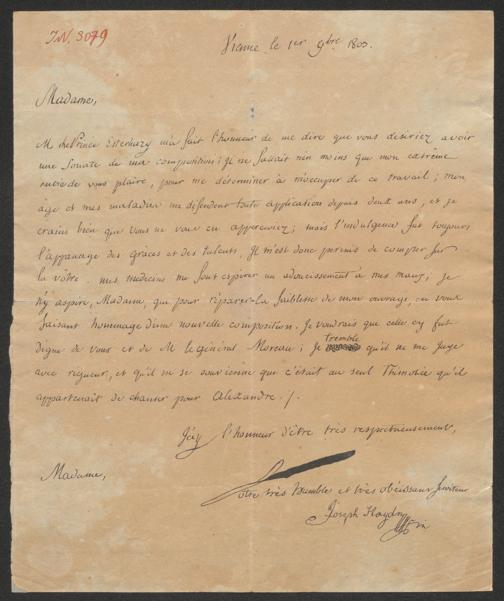 I.N. 3079
Vienne le 1er 9bre 1803.
Madame,
M le Prince Esterhazy m'a fait l'honneur de me dire que vous desiriez avoir
une Sonate de ma composition; Je ne fallait rien moins que mon extrême
de vous plaire, pour me déterminer à m'occuper de ce travail; mon
âge et mes maladies me défendent toute application depuis deux ans, et je
crains bien que vous ne vous en apperceviez; mais l'indulgence fut toujours
l'appanage des Graces et des talents. Il m'est donc permis de compter sur
la vôtre. mes medecins me font espérer un adoucissement a mes maux; je
n'y aspire, Madame, que pour réparer la faiblesse de mon ouvrage, en vous
faisant homage d'une nouvelle composition. Je voudrais que celle cy fut
digne de vous et de M le général Moreau; Je Tremble qu'il ne me juge
avec rigueur, et qu'il ne se souvienne que c'était au seul Thimothée qu'il
appartenait de chanter pour Alexandre./.
J'ay l'honneur d'être très respectueusement,
Madame,
Votre très humble et très obéissant Serviteur
Joseph Haydn